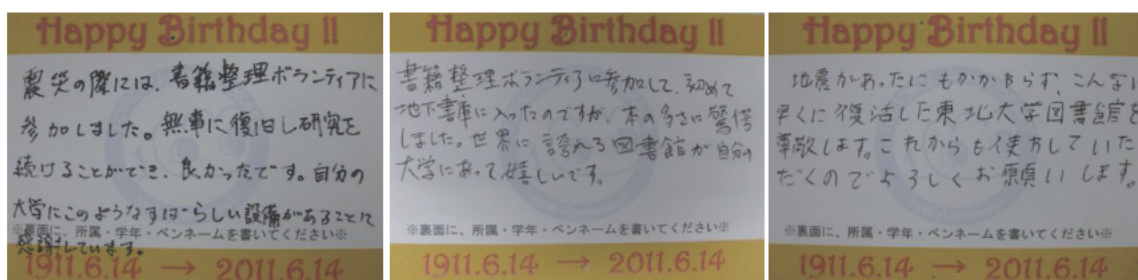 Happy Birthday !!
震災の際には、書籍整理ボランティアに
参加しました。無事に復旧し研究を
続けることができ、良かったです。自分の
大学にこのようなすばらしい設備があることに
感謝しています。
※裏面に、所属・学年・ペンネームを書いてください※
1911.6.14 → 2011.6.14
Happy Birthday !!
書籍整理ボランティアに参加して、初めて
地下書庫に入ったのですが、本の多さに驚愕
しました。世界に誇れる図書館が自分の
大学にあって嬉しいです。
※裏面に、所属・学年・ペンネームを書いてください※
1911.6.14 → 2011.6.14
Happy Birthday !!
地震があったにもかかわらず、こんなに
早くに復活した東北大学図書館を
尊敬します。これからも使わしていた
だくのでよろしくお願いします。
※裏面に、所属・学年・ペンネームを書いてください※
1911.6.14 → 2011.6.14